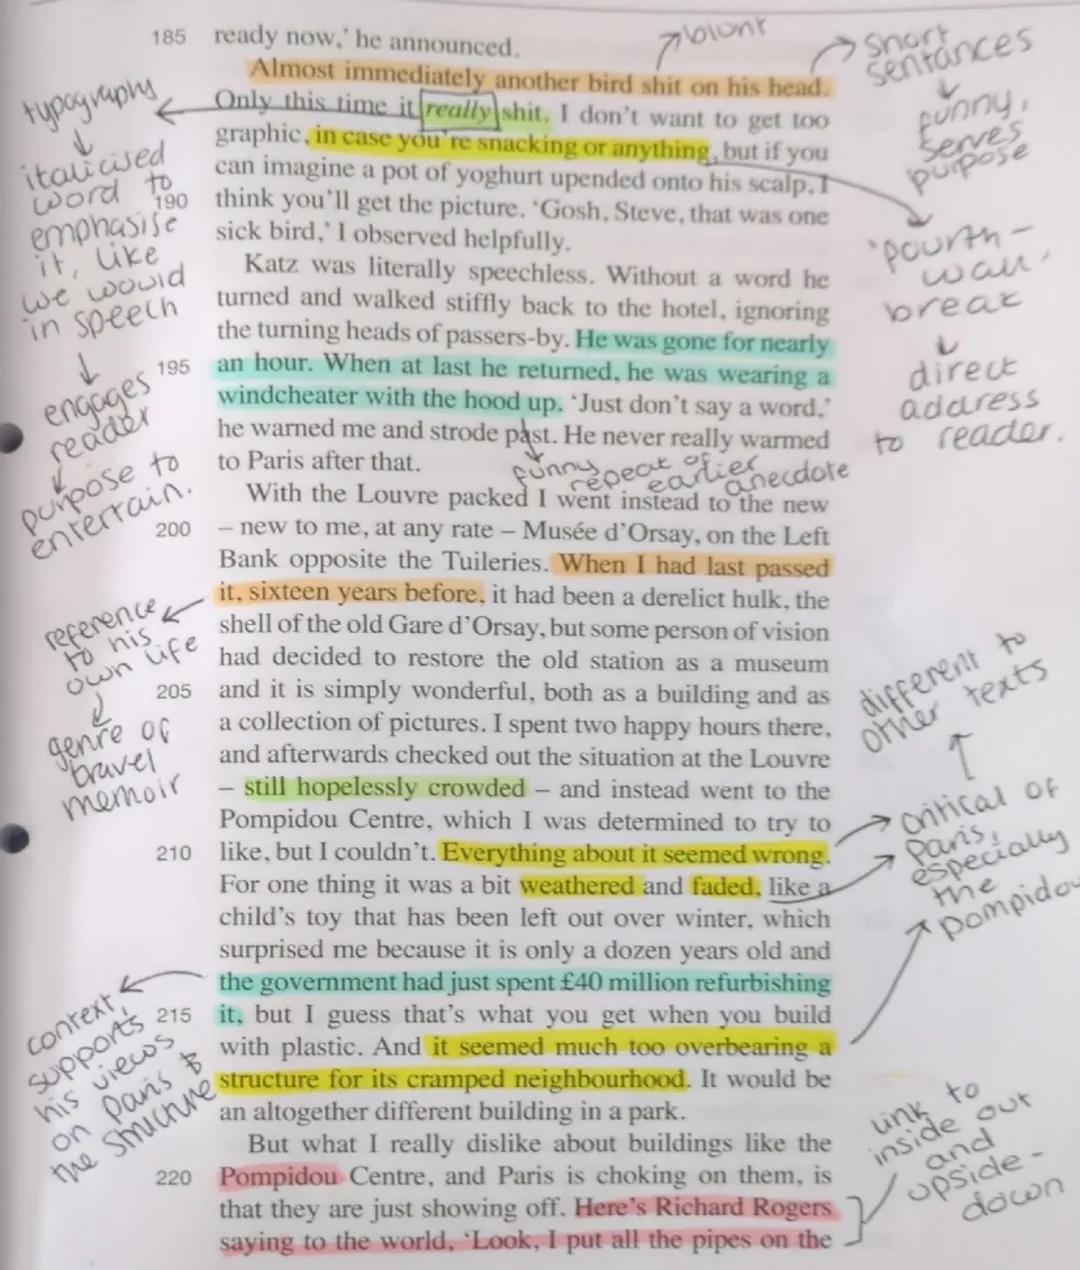 185 ready now,' he announced.
Almost immediately another bird shit on his head.
Only this time it really shit. I don't want to get too
graphic, in case you're snacking or anything, but if you
can imagine a pot of yoghurt upended onto his scalp, I
190 think you'll get the picture. 'Gosh, Steve, that was one
sick bird,' I observed helpfully.
Katz was literally speechless. Without a word he
turned and walked stiffly back to the hotel, ignoring
the turning heads of passers-by. He was gone for nearly
195 an hour. When at last he returned, he was wearing a
windcheater with the hood up. 'Just don't say a word,'
he warned me and strode past. He never really warmed
to Paris after that.
With the Louvre packed I went instead to the new
200 – new to me, at any rate – Musée d'Orsay, on the Left
Bank opposite the Tuileries. When I had last passed
it, sixteen years before, it had been a derelict hulk, the
shell of the old Gare d'Orsay, but some person of vision
had decided to restore the old station as a museum
205 and it is simply wonderful, both as a building and as
a collection of pictures. I spent two happy hours there,
and afterwards checked out the situation at the Louvre
– still hopelessly crowded – and instead went to the
Pompidou Centre, which I was determined to try to
210 like, but I couldn't. Everything about it seemed wrong.
For one thing it was a bit weathered and faded, like a
child's toy that has been left out over winter, which
surprised me because it is only a dozen years old and
the government had just spent £40 million refurbishing
215 it, but I guess that's what you get when you build
with plastic. And it seemed much too overbearing a
structure for its cramped neighbourhood. It would be
an altogether different building in a park.
But what I really dislike about buildings like the
220 Pompidou Centre, and Paris is choking on them, is
that they are just showing off. Here's Richard Rogers
saying to the world, 'Look, I put all the pipes on the
typography
italicised
word to
emphasise
it, like
we would
in speech
engages
reader
purpose to
entertain.
reference
to his
own life
genre of
travel
memoir
context,
supports
his views
on Paris &
the structure
blunt
short
sentances
funny,
serves
purpose
'fourth-
wall'
break
direct
address
to reader.
funny
repeat of
earlier
anecdote
different to
other texts
critical of
Paris,
especially
the
Pompidou
link to
inside out
and
upside-
down